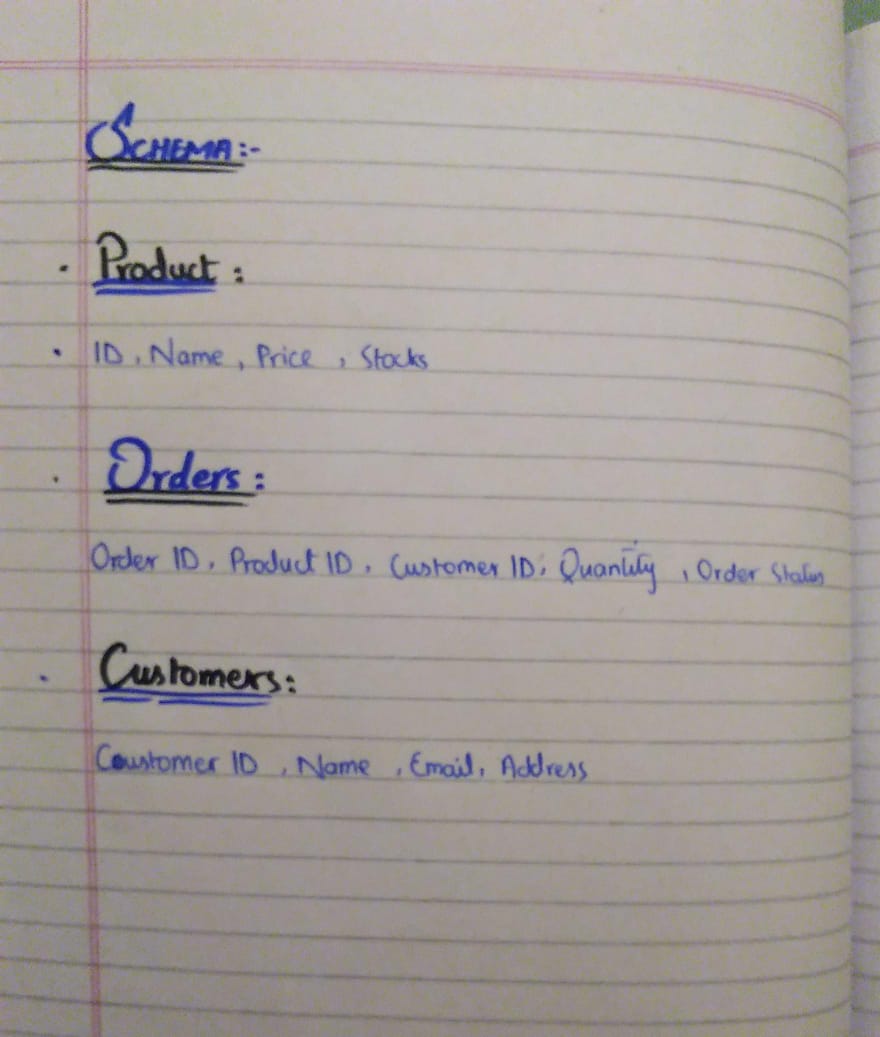 SCHEMA:-
• Product :
• ID, Name, Price, Stocks
• Orders :
Order ID, Product ID, Customer ID, Quantity, Order Status
• Customers:
Coustomer ID, Name, Email, Address